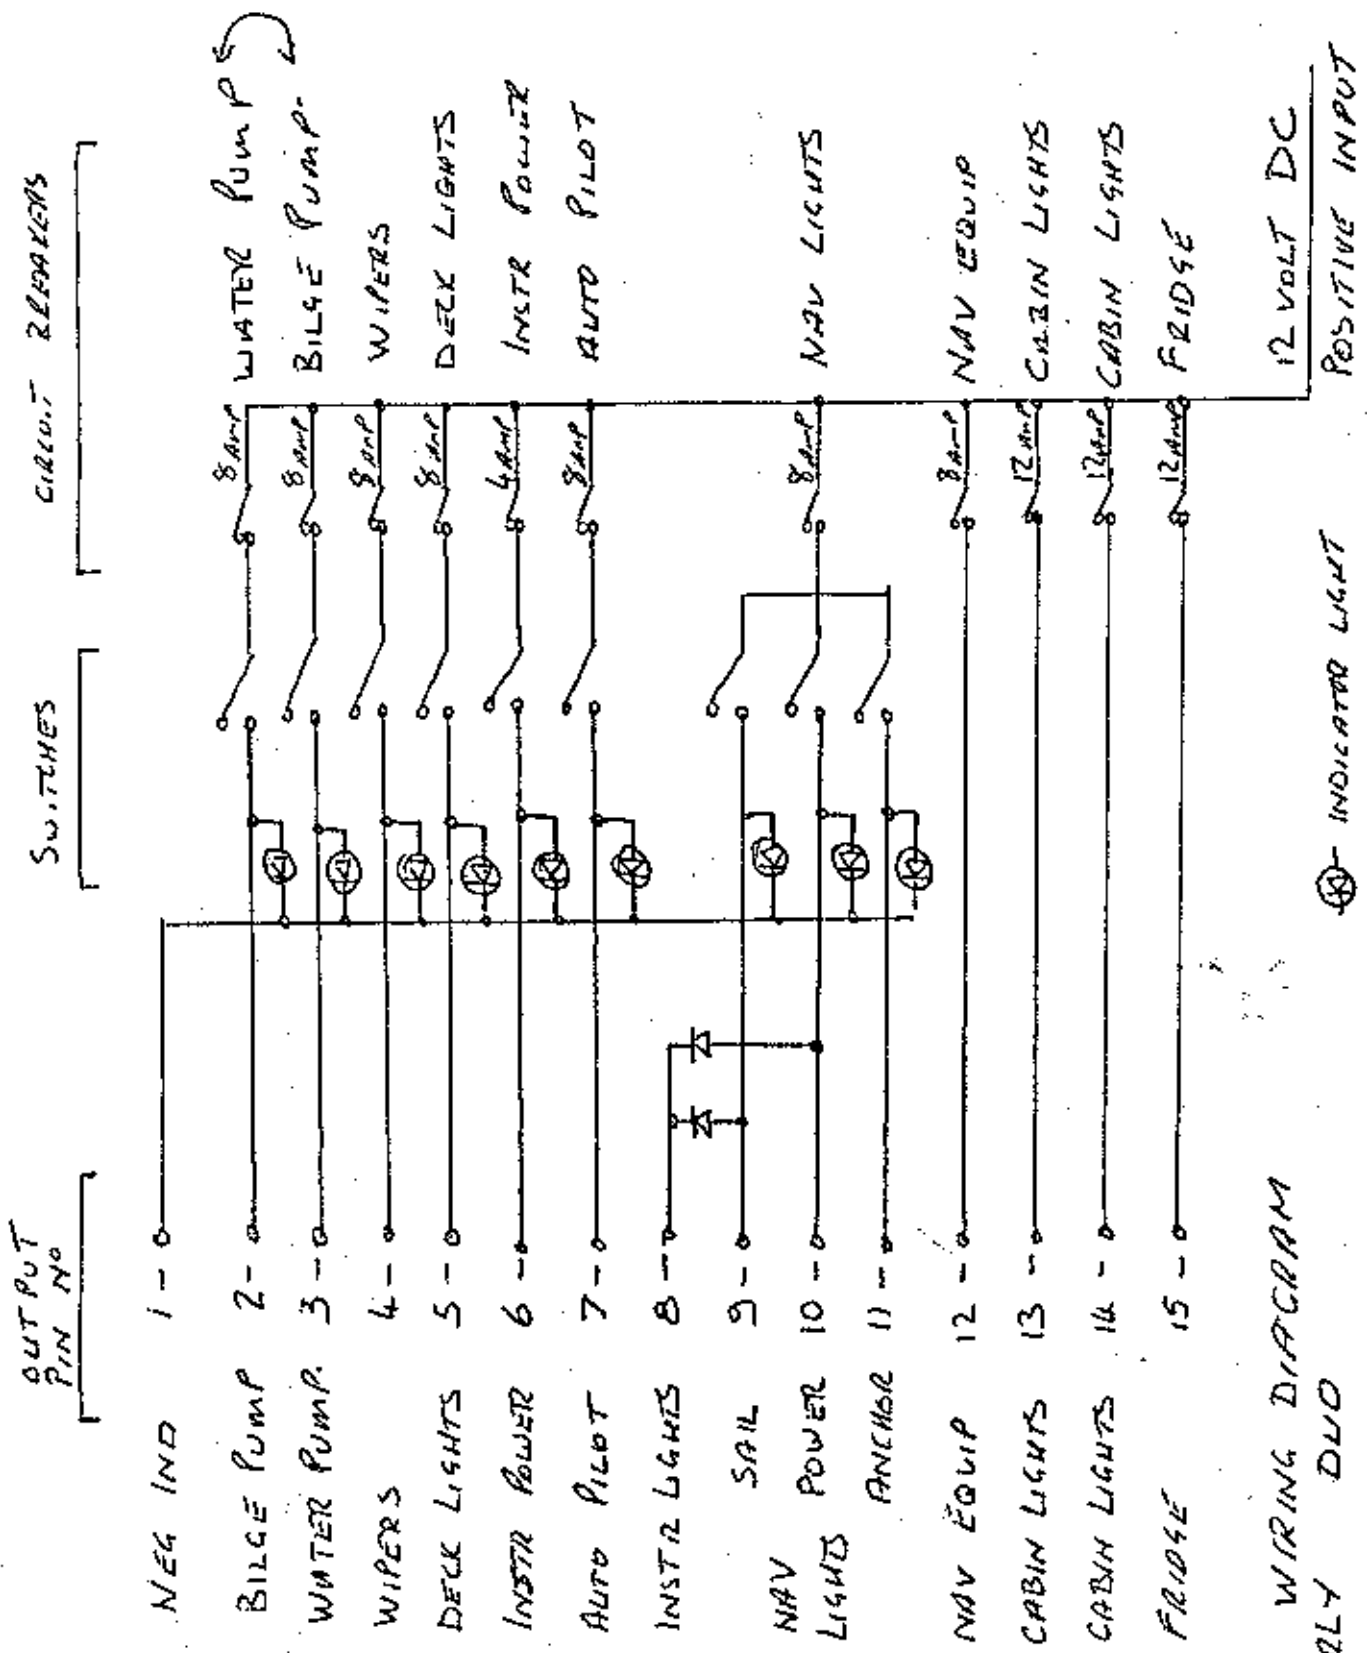 OUTPUT
PIN Nº
SWITCHES
CIRCUIT BREAKERS
NEG IND 1
BILGE PUMP 2 8 AMP WATER PUMP
WATER PUMP. 3 8 AMP BILGE PUMP.
WIPERS 4 8 AMP WIPERS
DECK LIGHTS 5 8 AMP DECK LIGHTS
INSTR POWER 6 4 AMP INSTR POWER
AUTO PILOT 7 8 AMP AUTO PILOT
INSTR LIGHTS 8
NAV
LIGHTS
SAIL 9
POWER 10 8 AMP NAV LIGHTS
ANCHOR 11
NAV EQUIP 12 8 AMP NAV EQUIP
CABIN LIGHTS 13 12 AMP CABIN LIGHTS
CABIN LIGHTS 14 12 AMP CABIN LIGHTS
FRIDGE 15 12 AMP FRIDGE
12 VOLT DC
POSITIVE INPUT
WIRING DIAGRAM
RLY DUO
- INDICATOR LIGHT